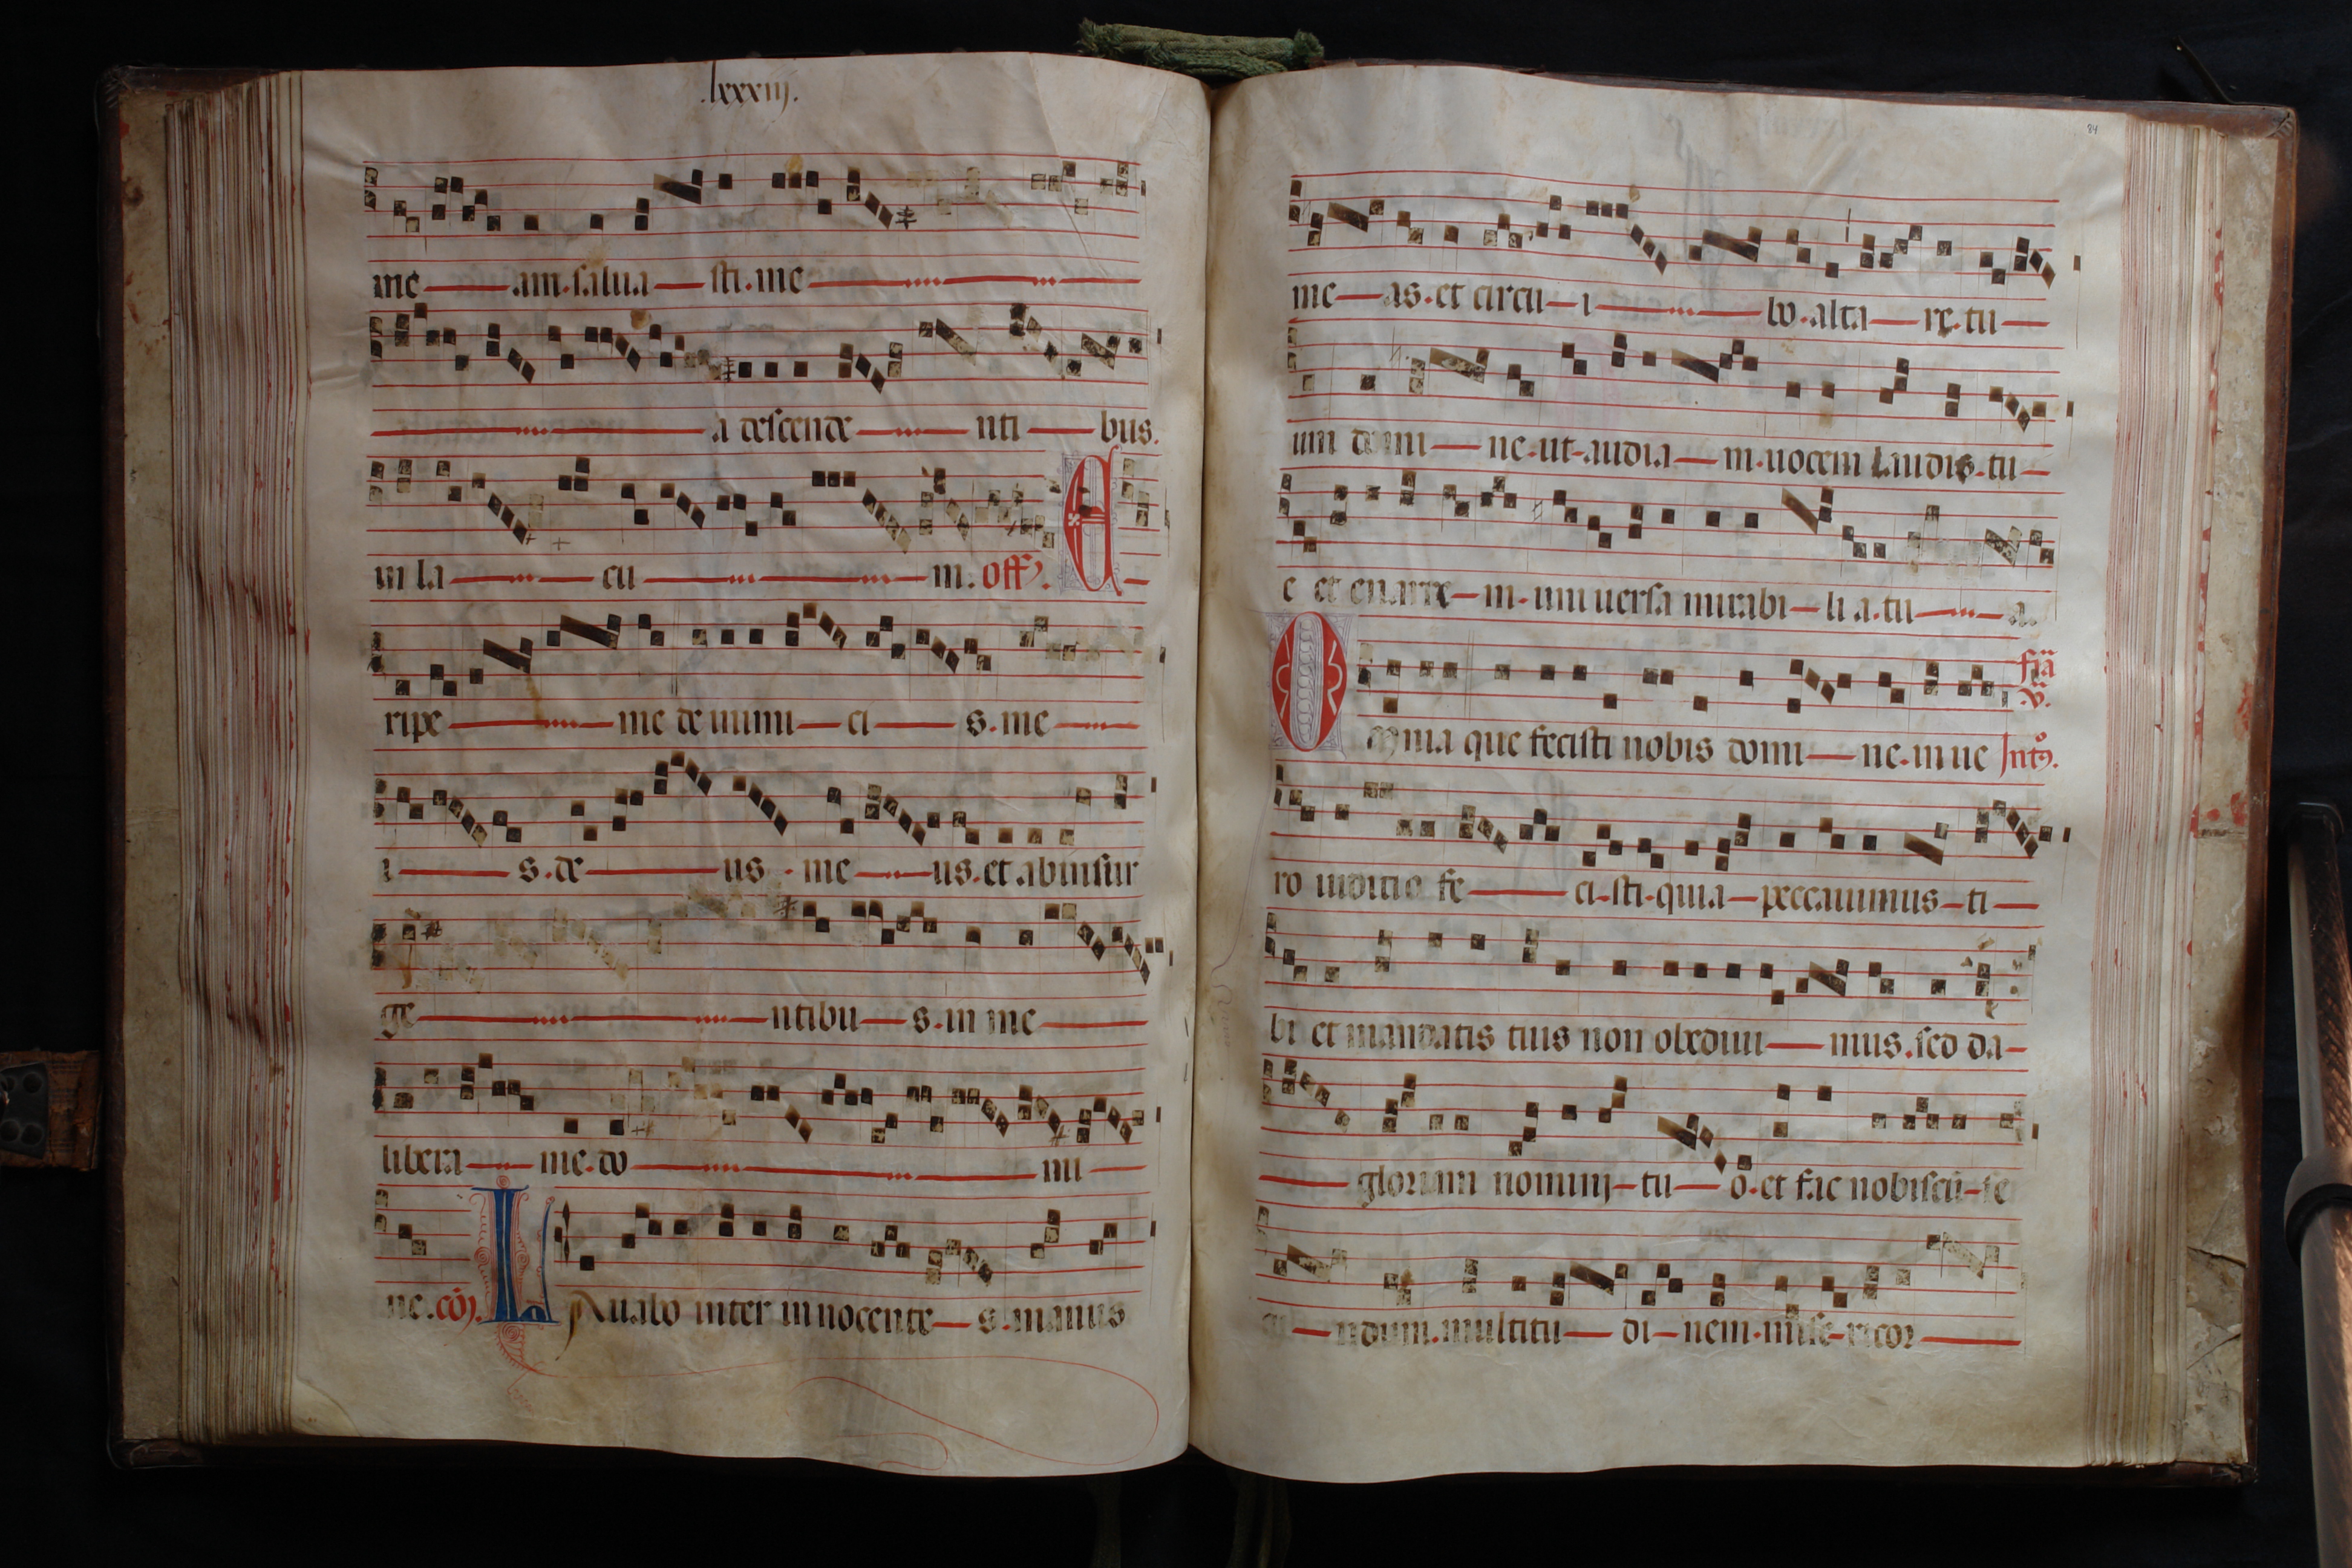 .lxxxiij.
me am. salua sti. me
a descende nti bus.
in la cu m. off. E
ripe me de inimi ci s. me
i s. de us. me us. et ab insur
ge ntibu s. in me
libera me. do mi
ne. cõ. L Auabo inter innocente s. manus
84
me as. et circu i bo. alta re. tu
um domi ne. ut. audia m. uocem laudis. tu
e et enarre m. uniuersa mirabi li a. tu a.
fia v.
O mnia que fecisti nobis domi ne. in ue Int.
ro iudicio fe ci. sti. quia peccauimus ti
bi et mandatis tuis non obediui mus. sed da
gloriam nominj tu o. et fac nobiscũ se
cu ndum. multitu di nem. mise ricor